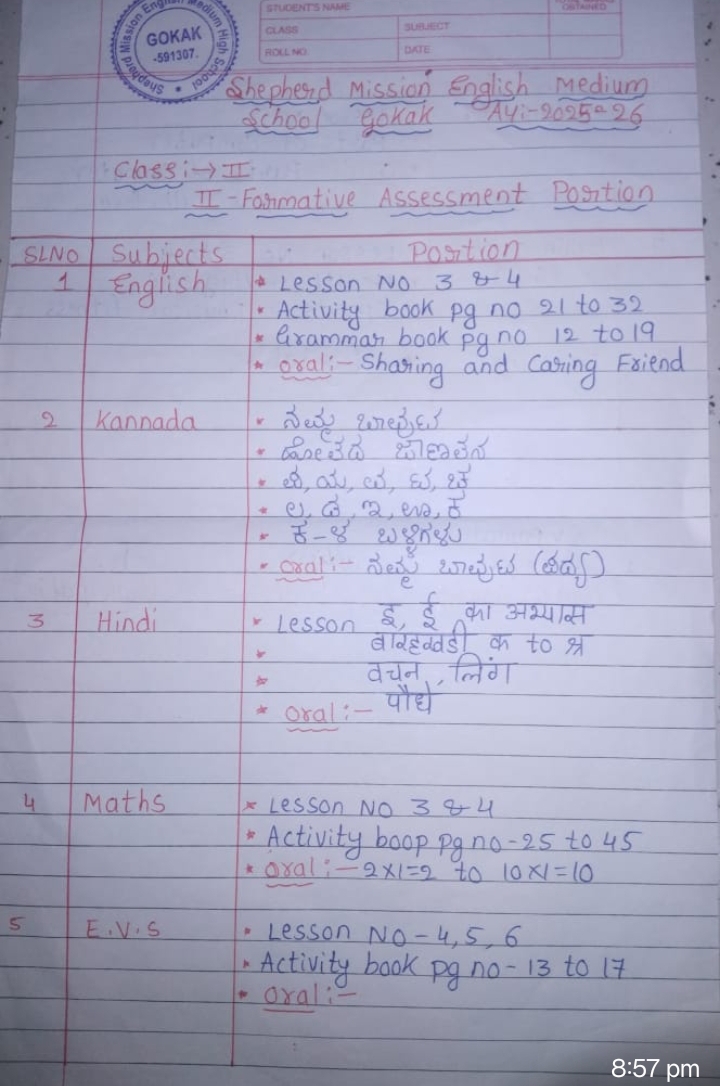 Shepherd Mission English Medium High School
GOKAK
-591307.
STUDENT'S NAME
CLASS
SUBJECT
ROLL NO.
DATE
OBTAINED
Shepherd Mission English Medium
School Gokak AY:-2025-26
Class:→II
II-Formative Assessment Portion
SLNO Subjects Portion
1 English * Lesson No 3 & 4
• Activity book pg no 21 to 32
* Grammar book pg no 12 to 19
* oral:- Sharing and Caring Friend
2 Kannada • ನಮ್ಮ ಬಾವುಟ
•
•
•
* ಕ-ಳ ಬಳ್ಳಿಗಳು
• oral:- ನಮ್ಮ ಬಾವುಟ (ಪದ್ಯ)
3 Hindi * Lesson इ, ई का अभ्यास
* बारहखडी क to श्र
* वचन, लिंग
* oral:- पौधे
4 Maths * Lesson No 3 & 4
* Activity boop pg no-25 to 45
* oral:-2x1=2 to 10x1=10
5 E.V.S • Lesson No-4,5,6
• Activity book pg no-13 to 17
• oral:-
8:57 pm